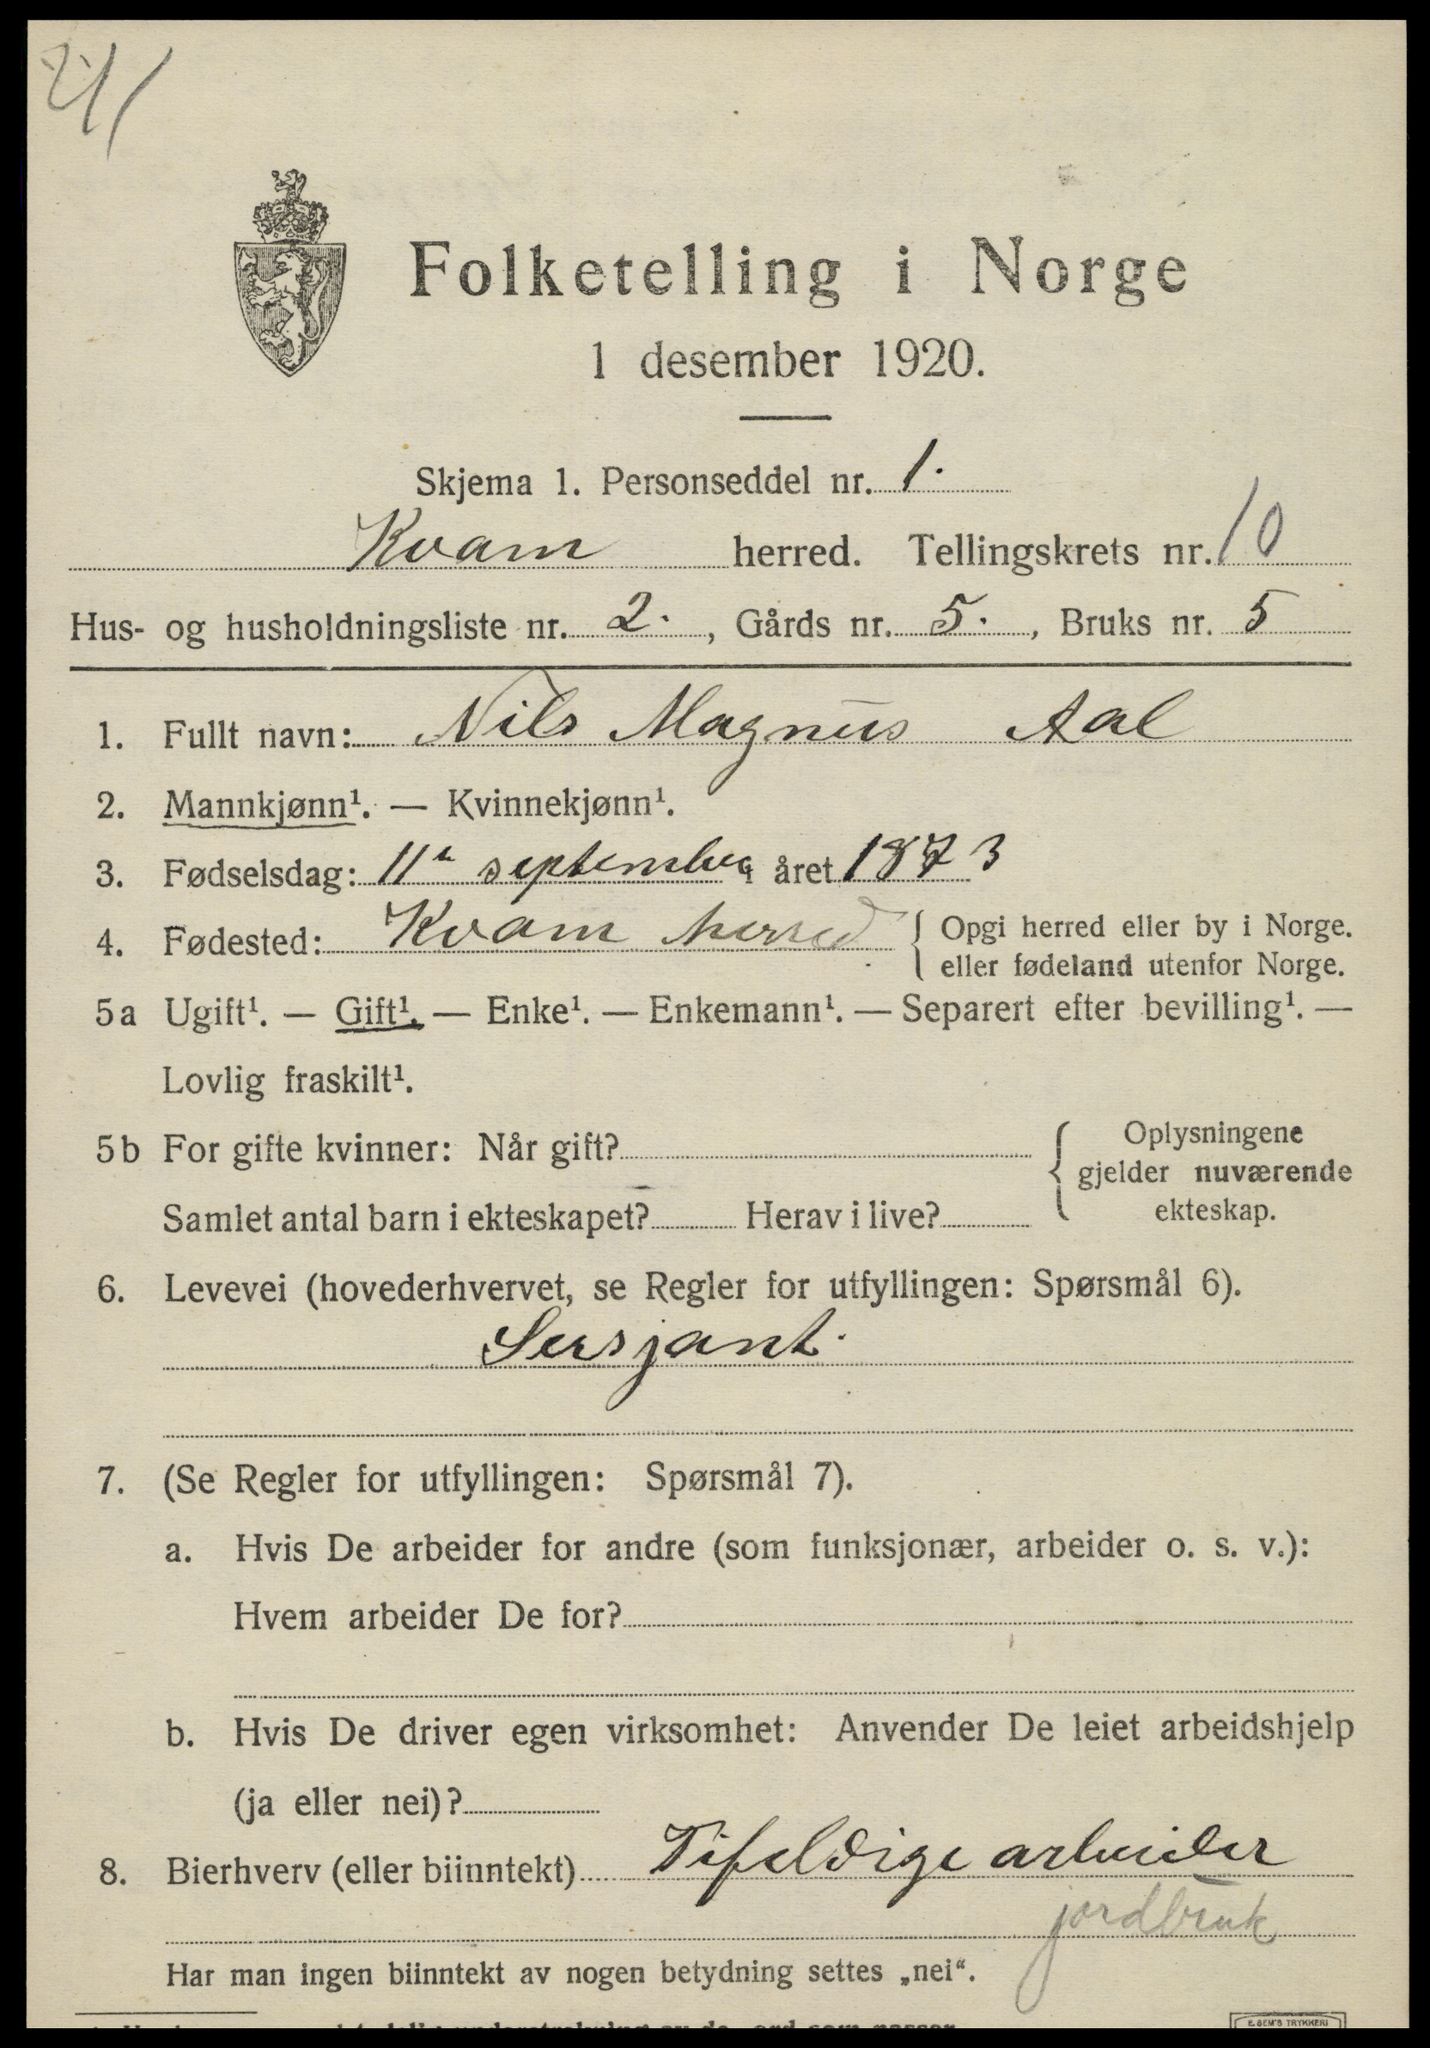 Folketelling i Norge
1 desember 1920.
Skjema 1. Personseddel nr. 1.
Kvam herred. Tellingskrets nr. 10
Hus- og husholdningsliste nr. 2. , Gårds nr. 5. , Bruks nr. 5
1. Fullt navn: Nils Magnus Aal
2. Mannkjønn¹. — Kvinnekjønn¹.
3. Fødselsdag: 11te september i året 1873
4. Fødested: Kvam herred { Opgi herred eller by i Norge.
eller fødeland utenfor Norge.
5a Ugift¹. — Gift¹. — Enke¹. — Enkemann¹. — Separert efter bevilling¹. —
Lovlig fraskilt¹.
5b For gifte kvinner: Når gift?
Samlet antal barn i ekteskapet? Herav i live?
{ Oplysningene
gjelder nuværende
ekteskap.
6. Levevei (hovederhvervet, se Regler for utfyllingen: Spørsmål 6).
Sersjant.
7. (Se Regler for utfyllingen: Spørsmål 7).
a. Hvis De arbeider for andre (som funksjonær, arbeider o. s. v.):
Hvem arbeider De for?
b. Hvis De driver egen virksomhet: Anvender De leiet arbeidshjelp
(ja eller nei)?
8. Bierhverv (eller biinntekt) Tifeldige arbeider
jordbruk
Har man ingen biinntekt av nogen betydning settes „nei“.
E. SEM'S TRYKKERI